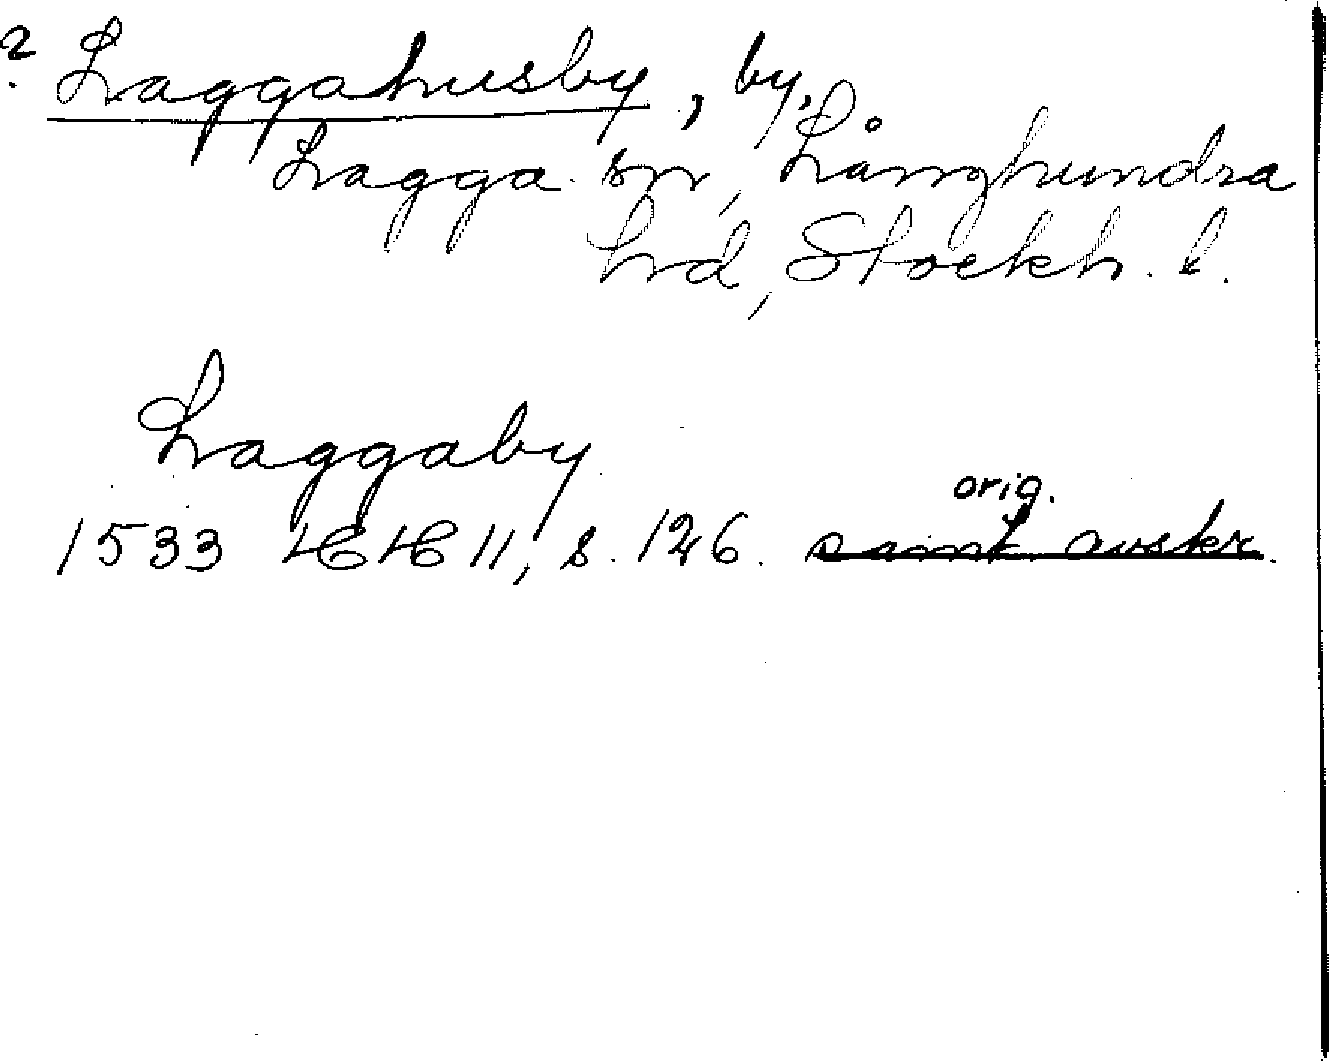 ? Laggahusby, by,
Lagga sn, Långhundra
hd, Stockh. l.
Laggaby
orig.
1533 HH 11, s. 126. samt. avskr.